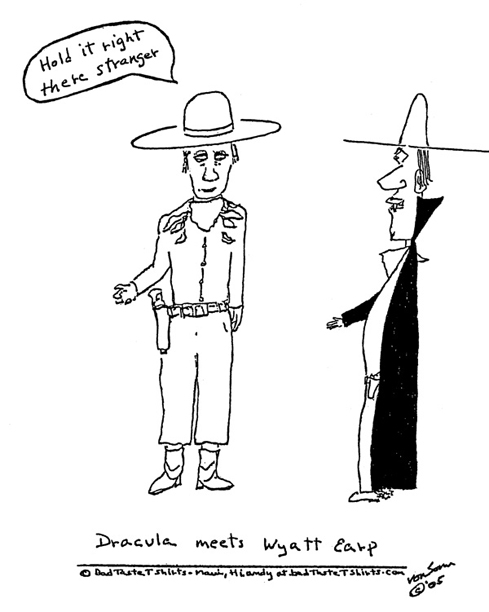 Hold it right
there stranger
Dracula meets Wyatt Earp
© BadTasteTShirts - Maui, HI andy at badTasteTShirts.com
© '05